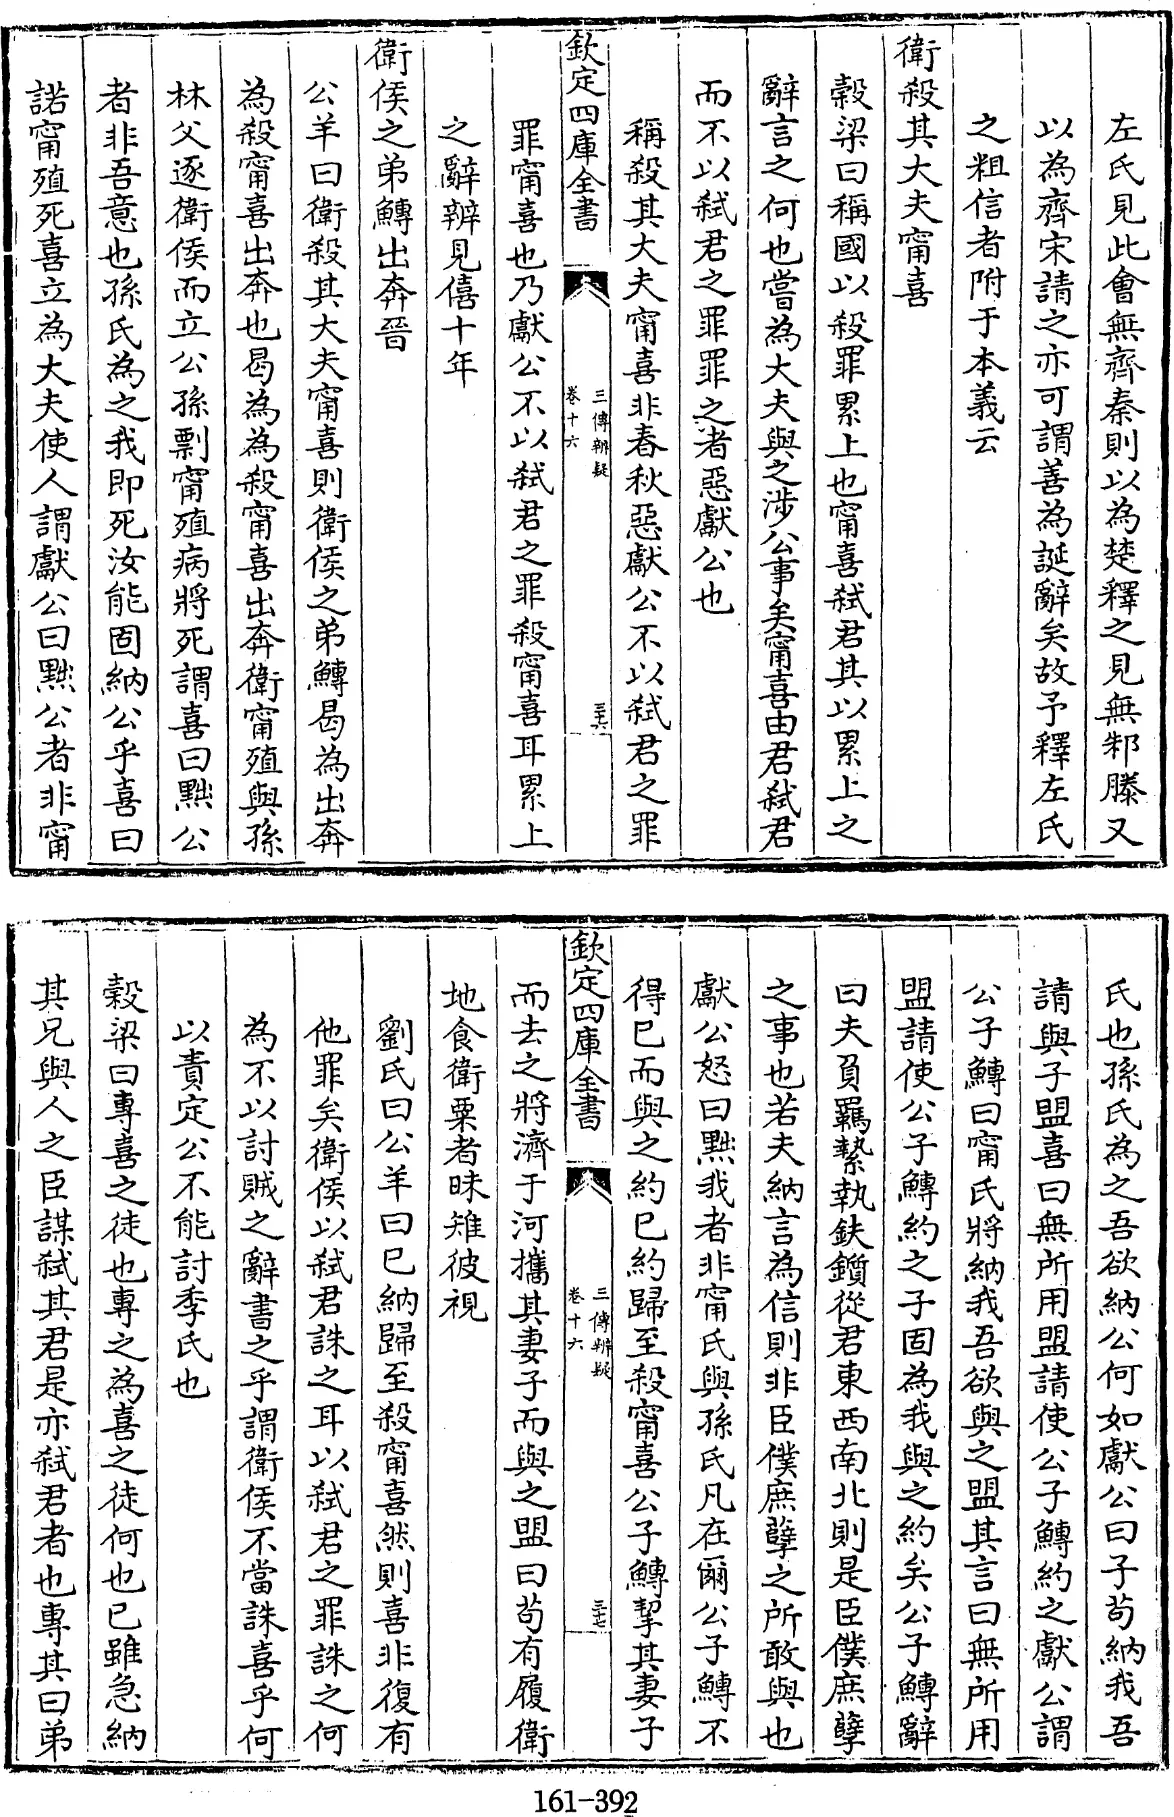 左氏見此會無齊秦則以為楚釋之見無邾滕又
以為齊宋請之亦可謂善為誕辭矣故予釋左氏
之粗信者附于本義云
衛殺其大夫甯喜
榖梁曰稱國以殺罪累上也甯喜弑君其以累上之
辭言之何也嘗為大夫與之涉公事矣甯喜由君弑君
而不以弑君之罪罪之者惡獻公也
稱殺其大夫甯喜非春秋惡獻公不以弑君之罪
欽定四庫全書
三傳辨疑
卷十六
三六
罪甯喜也乃獻公不以弑君之罪殺甯喜耳累上
之辭辨見僖十年
衛侯之弟鱄出奔晉
公羊曰衛殺其大夫甯喜則衛侯之弟鱄曷為出奔
為殺甯喜出奔也曷為為殺甯喜出奔衛甯殖與孫
林父逐衛侯而立公孫剽甯殖病將死謂喜曰黜公
者非吾意也孫氏為之我即死汝能固納公乎喜曰
諾甯殖死喜立為大夫使人謂獻公曰黜公者非甯
氏也孫氏為之吾欲納公何如獻公曰子茍納我吾
請與子盟喜曰無所用盟請使公子鱄約之獻公謂
公子鱄曰甯氏將納我吾欲與之盟其言曰無所用
盟請使公子鱄約之子固為我與之約矣公子鱄辭
曰夫負羈縶執鈇鑕從君東西南北則是臣僕庶孽
之事也若夫納言為信則非臣僕庶孽之所敢與也
獻公怒曰黜我者非甯氏與孫氏凡在爾公子鱄不
得已而與之約已約歸至殺甯喜公子鱄挈其妻子
欽定四庫全書
三傳辨疑
卷十六
三七
而去之將濟于河攜其妻子而與之盟曰茍有履衛
地食衛粟者昧雉彼視
劉氏曰公羊曰已納歸至殺甯喜然則喜非復有
他罪矣衛侯以弑君誅之耳以弑君之罪誅之何
為不以討賊之辭書之乎謂衛侯不當誅喜乎何
以責定公不能討季氏也
榖梁曰專喜之徒也專之為喜之徒何也已雖急納
其兄與人之臣謀弑其君是亦弑君者也專其曰弟
161-392